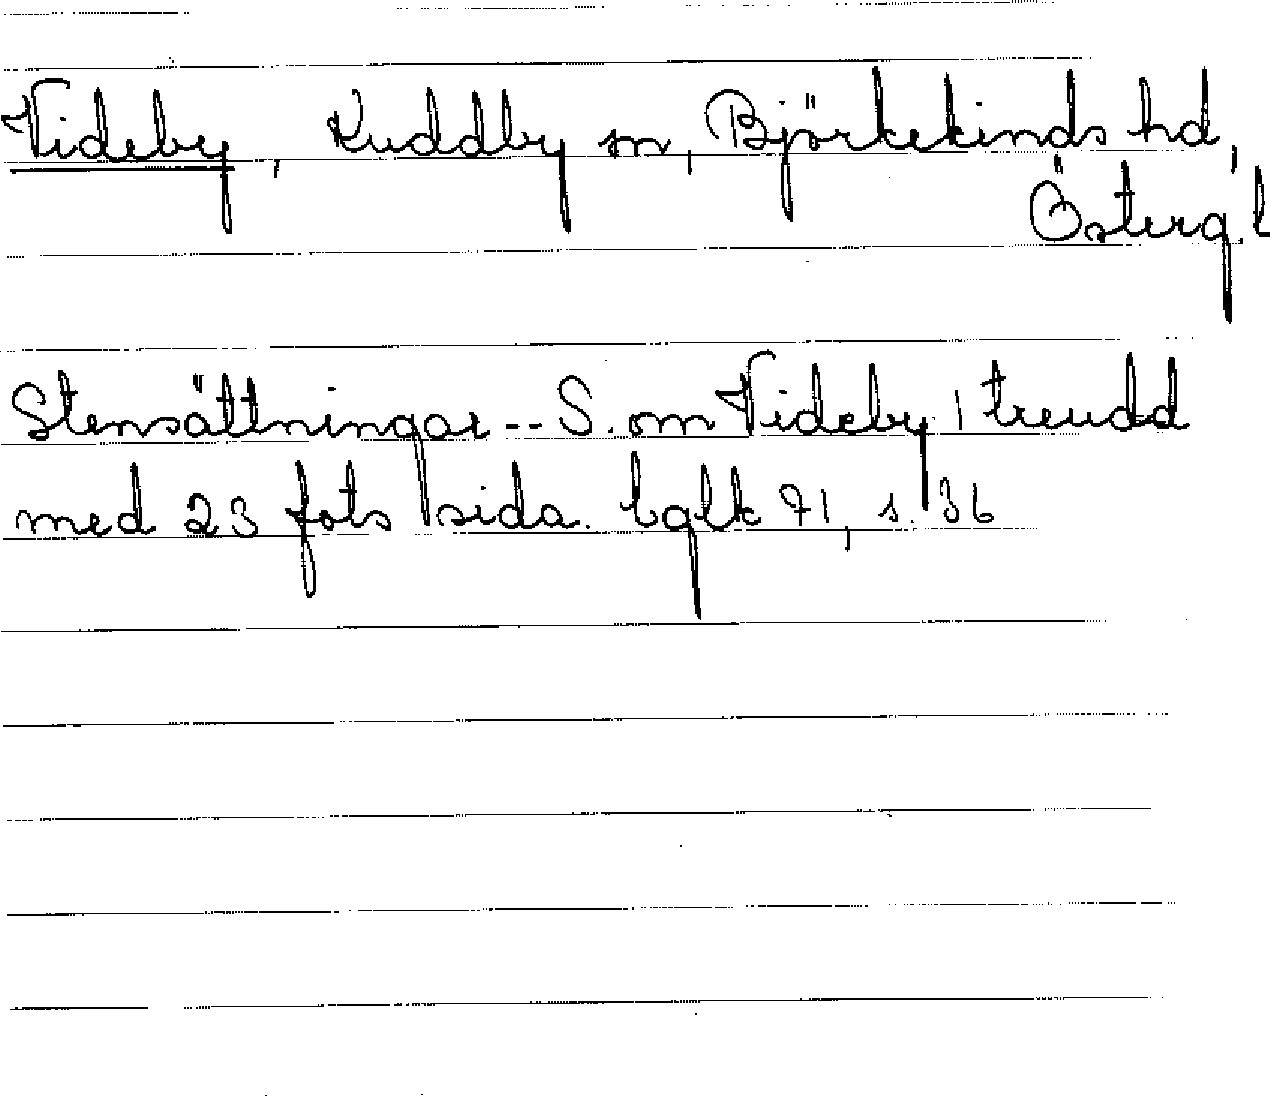 Videby, Kuddby sn, Björkekinds hd,
Österg. l
Stensättningar -- S. om Videby 1 treudd
med 23 fots sida. bglk 71, s. 36